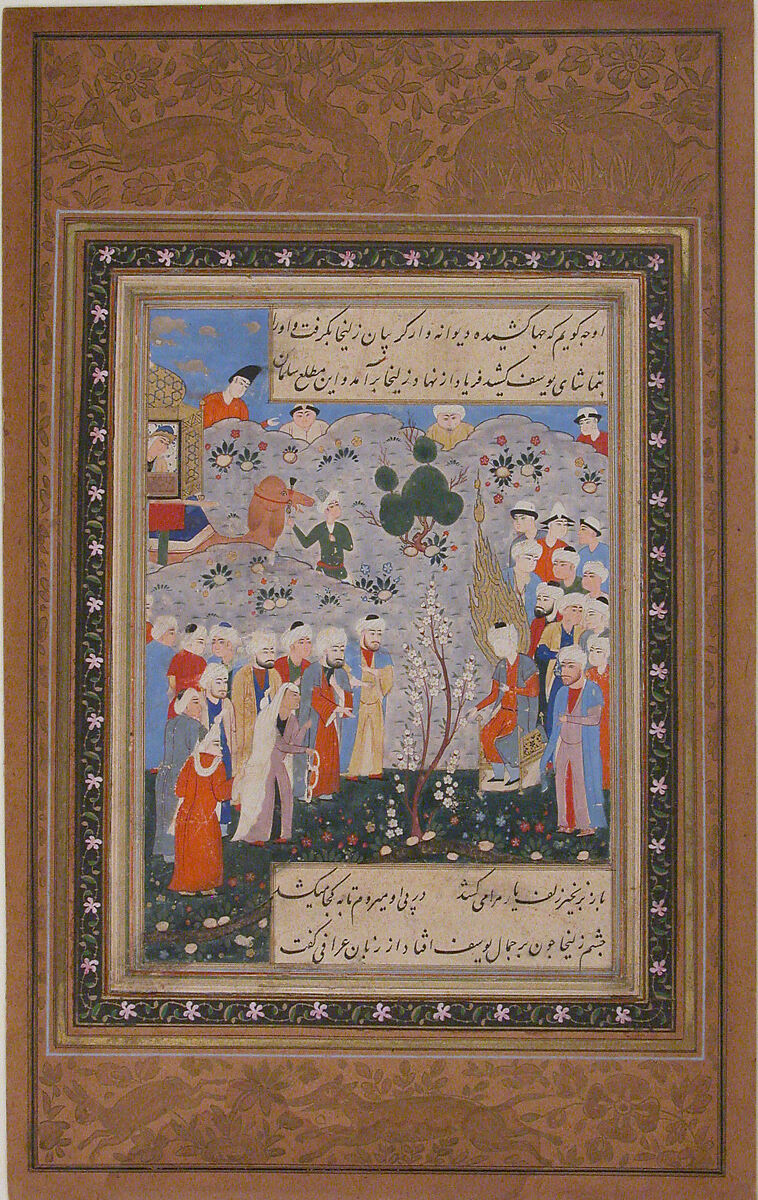 او چه گویم که جها کشیده دیوانه وار گریبان زلیخا بگرفت و او را
بتماشای یوسف کشید فریاد از نهاد زلیخا برآمد و این مطلع سلمان
باز زنجیر زلف یار مرا می کشد در پی او میروم تا به کجا میکشد
چشم زلیخا چون بر جمال یوسف افتاد از زبان عراقی گفت